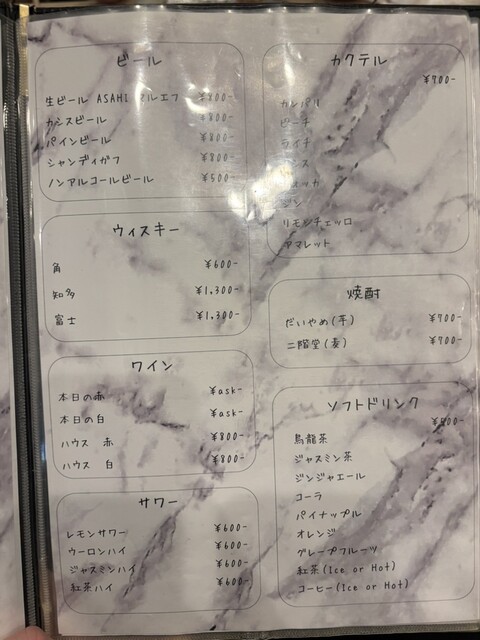 ビール
生ビール ASAHI マルエフ ¥800-
カシスビール ¥800-
パインビール ¥800-
シャンディガフ ¥800-
ノンアルコールビール ¥500-
ウィスキー
角 ¥600-
知多 ¥1,300-
富士 ¥1,300-
ワイン
本日の赤 ¥ask-
本日の白 ¥ask-
ハウス 赤 ¥800-
ハウス 白 ¥800-
サワー
レモンサワー ¥600-
ウーロンハイ ¥600-
ジャスミンハイ ¥600-
紅茶ハイ ¥600-
カクテル
¥700-
カンパリ
ピーチ
ライチ
カシス
ウォッカ
ジン
リモンチェッロ
アマレット
焼酎
だいやめ(芋) ¥700-
二階堂(麦) ¥700-
ソフトドリンク
烏龍茶
ジャスミン茶
ジンジャエール
コーラ
パイナップル
オレンジ
グレープフルーツ
紅茶(Ice or Hot)
コーヒー(Ice or Hot)